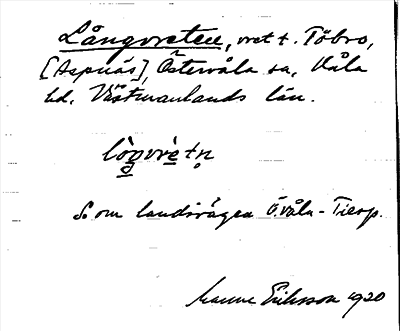 Långvreten, vret t. Töbro,
[Aspnäs], Östervåla sn, Våla
hd, Västmanlands län.
lòŋvrètn̥
S. om landsvägen Ö.våla - Tierp.
Manne Eriksson 1920